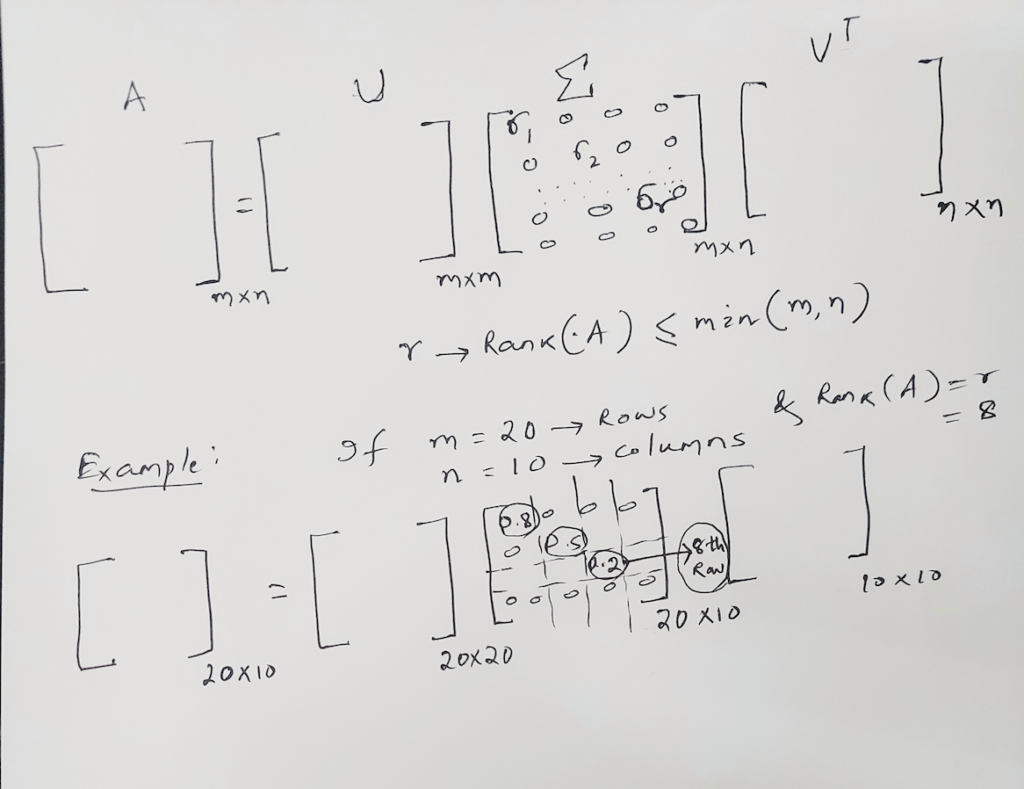 A U Σ V^T
[ ] m×n = [ ] m×m [ σ₁ 0 0 0
0 σ₂ 0 0
. . . . . . . .
0 0 σr 0
0 0 0 0 ] m×n [ ] n×n
r → Rank(A) ≤ min(m,n)
Example: If m = 20 → Rows & Rank(A) = r
n = 10 → columns = 8
[ ] 20×10 = [ ] 20×20 [ 0.8 0 0 0
0 0.5
0.2 → 8th Raw
0 0 0 0 0 ] 20×10 [ ] 10×10